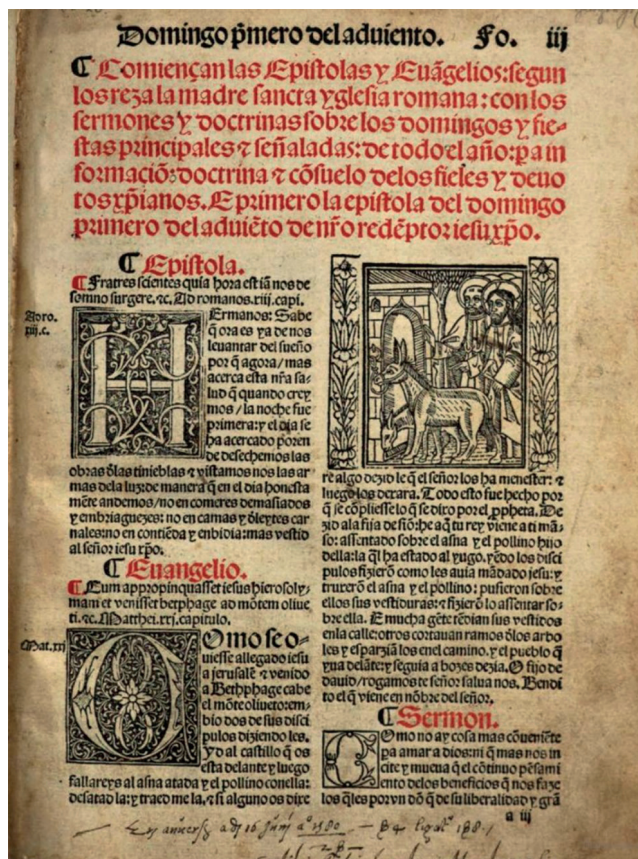 Domingo p̃mero del aduiento. Fo. iij
¶ Comiençan las Epistolas y Euãgelios: segun
los reza la madre sancta yglesia romana: con los
sermones y doctrinas sobre los domingos y fie-
stas principales ⁊ señaladas: de todo el año: ꝑa in
formaciõ: doctrina ⁊ cõsuelo delos fieles y deuo
tos xp̃ianos. E primero la epistola del domingo
primero del aduiẽto de nr̃o redẽptor iesu xp̃o.
¶ Epistola.
¶ Fratres scientes quia hora est iã nos de
somno surgere. ⁊c. Ad romanos. xiij. capi.
Ad ro.
xiij. c.
HErmanos: Sabe
q̃ ora es ya de nos
leuantar del sueño
por q̃ agora / mas
acerca esta nr̃a sa-
lud q̃ quando crey
mos / la noche fue
primera: y el dia se
ha acercado poren
de desechemos las
obras õlas tinieblas ⁊ vistamos nos las ar
mas dela luz: de manera q̃ en el dia honesta
mẽte andemos / no en comeres demasiados
y embriaguezes: no en camas y õleytes car
nales: no en contiẽda y enbidia: mas vestid
al señor iesu xp̃o.
¶ Euangelio.
¶ Cum appropinquasset iesus hierosoly-
mam et venisset betphage ad mõtem oliue
ti. ⁊c. Matthei. xxj. capitulo.
Mat. xxj
COmo se o-
uiesse allegado iesu
a jerusalẽ ⁊ venido
a Bethphage cabe
el mõte oliueto: em-
bio dos de sus disci
pulos diziendo les.
Yd al castillo q̃ os
esta delante y luego
fallareys al asna atada y el pollino conella:
desatad la: y traed me la. ⁊ si alguno os dixe
re algo dezid le q̃ el señor los ha menester: ⁊
luego los dexara. Todo esto fue hecho por
q̃ se cõpliesse lo q̃ se dixo por el ꝓpheta. De
zid ala fija de siõ: he aq̃ tu rey viene a ti mã-
so: assentado sobre el asna y el pollino hijo
della: la q̃l ha estado al yugo. yẽdo los disci
pulos fizierõ como les auia mãdado jesu: y
truxerõ el asna y el pollino: pusieron sobre
ellos sus vestiduras: ⁊ fizierõ lo assentar so-
bre ella. E mucha gẽte tẽdian sus vestidos
enla calle: otros cortauan ramos õlos arbo
les y esparziã los enel camino. y el pueblo q̃
yua delãte: y seguia a bozes dezia. O fijo de
dauid / rogamos te señor salua nos. Bendi
to el q̃ viene en nõbre del señor.
¶ Sermon.
COmo no ay cosa mas cõueniẽte
pa amar a dios: ni q̃ mas nos in
cite y mueua q̃ el cõtinuo pẽsami
ento delos beneficios q̃ nos faze
los q̃les por vn dõ q̃ de su liberalidad y grã
a iij